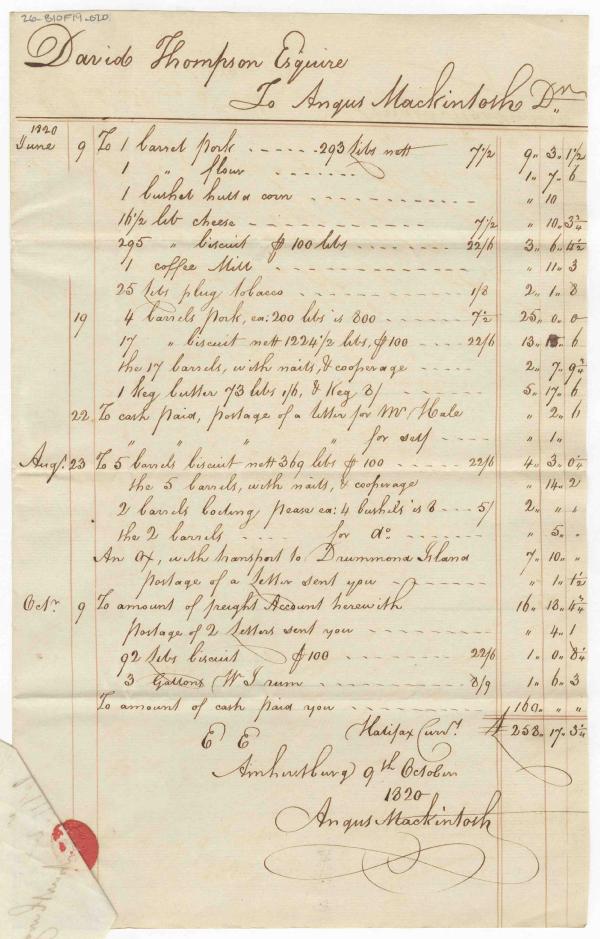 26-B10F19-020
David Thompson Esquire
To Angus Mackintosh Dr
1820
June 9 To 1 barrel pork ----- 293 libs nett 7 1/2 9 " 3 " 1 1/2
1 " flour ------- 1 " 7 " 6
1 bushel hulled corn ------------ " 10
16 1/2 lib cheese --------------- 7 1/2 " 10 " 3 3/4
295 " biscuit ⅌ 100 libs -------- 22/6 3 " 6 " 4 1/2
1 coffee Mill ------------ " 11 " 3
25 libs plug tobacco ------------ 1/8 2 " 1 " 8
19 4 barrels pork, ea: 200 libs is 800 ---- 7 1/2 25 " 0 " 0
17 " biscuit nett 1224 1/2 libs, ⅌ 100 ---- 22/6 13 " 15 " 6
the 17 barrels, with nails, & cooperage ---- 2 " 7 " 9 3/4
1 Keg butter 73 libs 1/6, & Keg 8/ ---- 5 " 17 " 6
22 To cash paid, postage of a letter for Mr Hale " 2 " 6
" " " " for self ---- " 1 "
Augt. 23 To 5 barrels biscuit nett 369 libs ⅌ 100 ---- 22/6 4 " 3 " 0 1/4
the 5 barrels, with nails, & cooperage " 14 " 2
2 barrels boiling pease ea: 4 bushels is 8 --- 5/ 2 " " "
the 2 barrels ---- for do. ---- " 5 "
An Ox, with transport to Drummond Island 7 " 10 "
postage of a Letter sent you -------- " 1 " 1 1/2
Octr. 9 To amount of freight Account herewith 16 " 18 " 4 3/4
Postage of 2 Letters sent you --------- " 4 " 1
92 Libs biscuit ⅌ 100 ---------- 22/6 1 " 0 " 8 1/4
3 Gallons W I rum ----------- 8/9 1 " 6 " 3
To amount of cash paid you -------- 160 " " "
E E Halifax Curry. £ 258 " 17 " 3 1/4
Amherstburg 9th October
1820
Angus Mackintosh